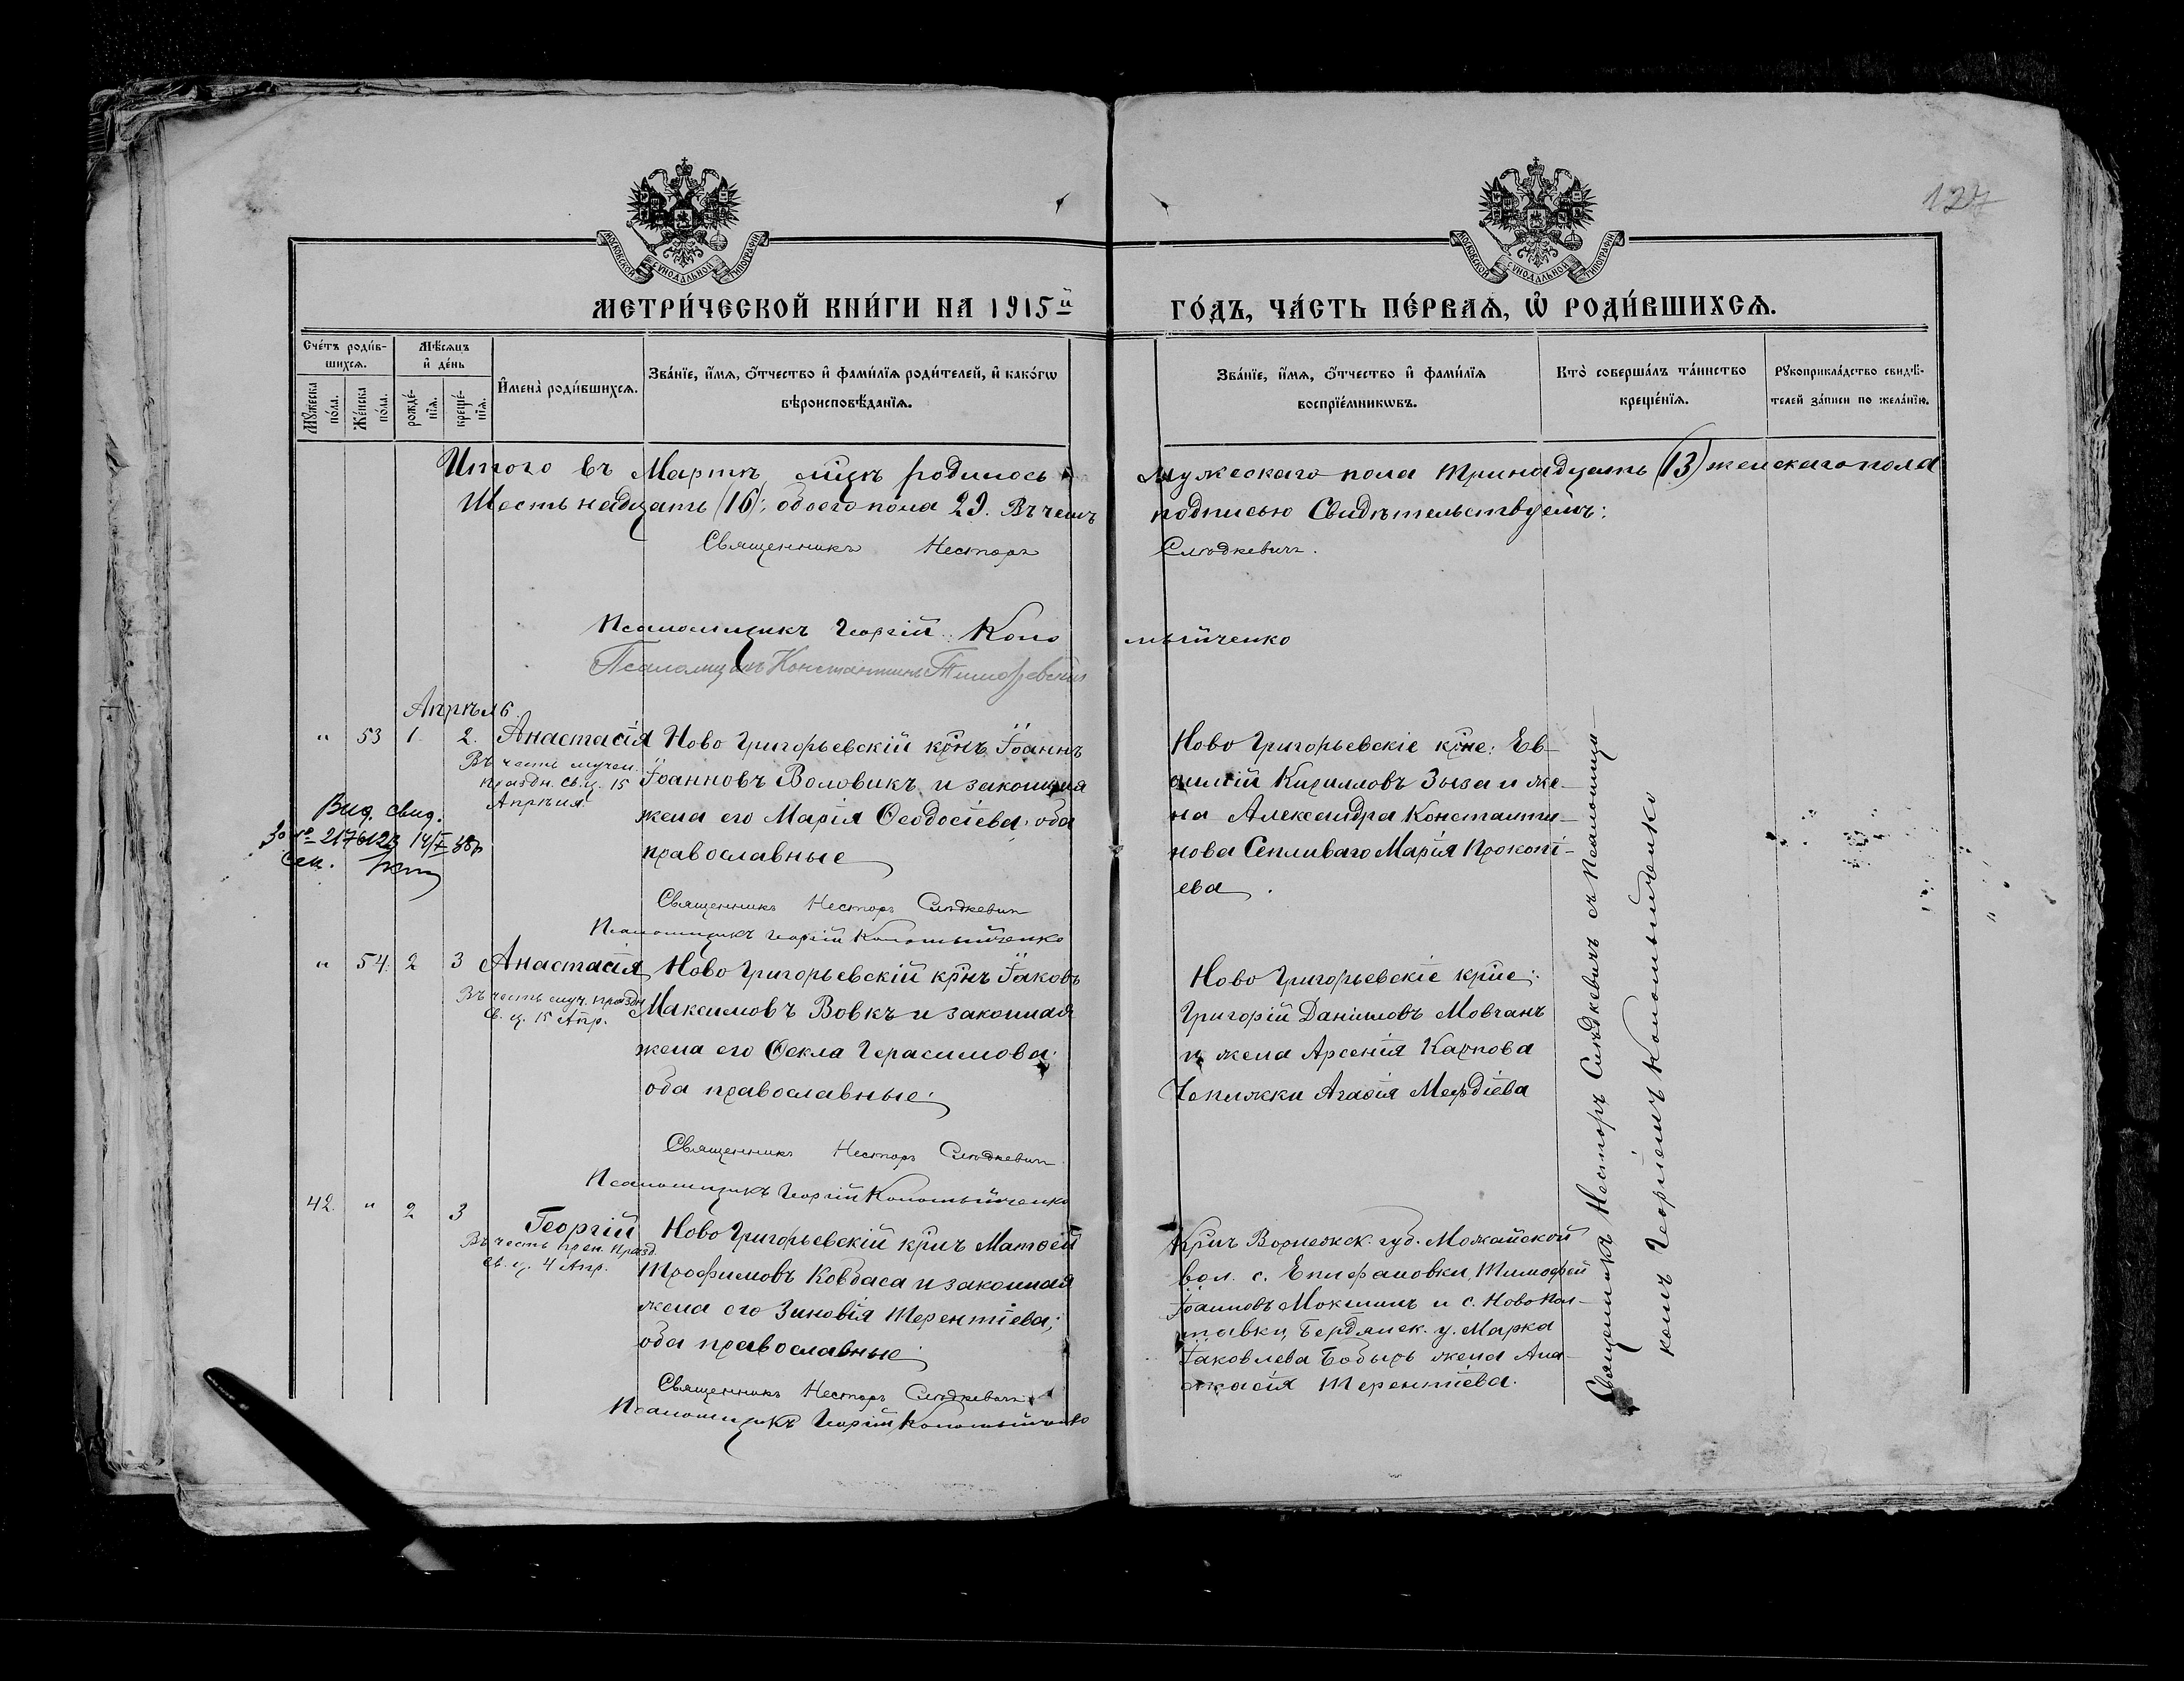 127
МОСКОВСКОЙ СѴНОДАЛЬНОЙ ТИПОГРАФІИ
МОСКОВСКОЙ СѴНОДАЛЬНОЙ ТИПОГРАФІИ
МЕТРИ́ЧЕСКОЙ КНИ́ГИ НА 1915й ГО́ДЪ, ЧА́СТЬ ПЕ́РВАѦ, Ѡ҆ РОДИ́ВШИХСѦ.
Сче́тъ роди́в-
шихсѧ.
Мꙋ́жеска по́ла.
Же́нска по́ла.
Мѣ́сѧцъ
и҆ де́нь
рожде́-
нїѧ.
креще́-
нїѧ.
И҆мена̀ роди́вшихсѧ.
Зва́нїе, и҆́мѧ, ѻ҆́тчество и҆ фами́лїѧ роди́телей, и҆ како́гѡ
вѣроисповѣ́данїѧ.
Зва́нїе, и҆́мѧ, ѻ҆́тчество и҆ фами́лїѧ
воспрїе́мникѡвъ.
Кто̀ соверша́лъ та́инство
креще́нїѧ.
Рꙋкоприкла́дство свидѣ́-
телей за́писи по жела́нїю.
Итого въ Мартѣ мцѣ родилось мужескаго пола тринадцать (13) женскаго пола
Шестьнадцать (16); обоего пола 29. Въ чемъ подписью свидѣтельствуемъ:
Священникъ Несторъ Слюдкевичъ.
Псаломщикъ Георгій Коломыйченко
Псаломщикъ Константинъ
Апрѣль
" 53 1 2. Анастасія
Въ честь мучен.
праздн. св. ц. 15
Апрѣля.
Выд. свид.
Ново Григорьевскій крнъ Іоаннъ
Іоанновъ Воловикъ и законная
жена его Марія Ѳеодосіева; оба
православные
Священникъ Несторъ Слюдкевичъ
Псаломщикъ Георгій Коломыйченко
Ново Григорьевскіе крне: Ев-
Кирилловъ Зыза и же-
на Александра Константи-
нова Сепливаго Марія Прокопі-
ева.
" 54. 2 3 Анастасія
Въ честь муч. праздн.
св. ц. 15 Апр.
Ново Григорьевскій крнъ Іаковъ
Максимовъ Вовкъ и законная
жена его Ѳекла Герасимова;
оба православные;
Священникъ Несторъ Слюдкевичъ
Псаломщикъ Георгій Коломыйченко
Ново Григорьевскіе крне:
Григорій Даніиловъ Мовчанъ
и жена Арсенія Карпова
Чепижки Агафія Меѳодіева
42. " 2 3 Георгій
Въ честь преп. празд.
св. ц. 4 Апр.
Ново Григорьевскій крнъ Матѳей
Трофимовъ Ковбаса и законная
жена его Зиновія Терентіева;
оба православные;
Священникъ Несторъ Слюдкевичъ
Псаломщикъ Георгій Коломыйченко
Крнъ Воронежск. губ. Можайской
вол. с. Епифановки, Тимофей
Іоанновъ Мокшинъ и с. Новопол-
тавки, Бердянск. у. Марка
Іаковлева Бобырь жена Ана-
стасія Терентіева.
Священникъ Несторъ Слюдкевичъ съ Псаломщи-
комъ Георгіемъ Коломыйченко